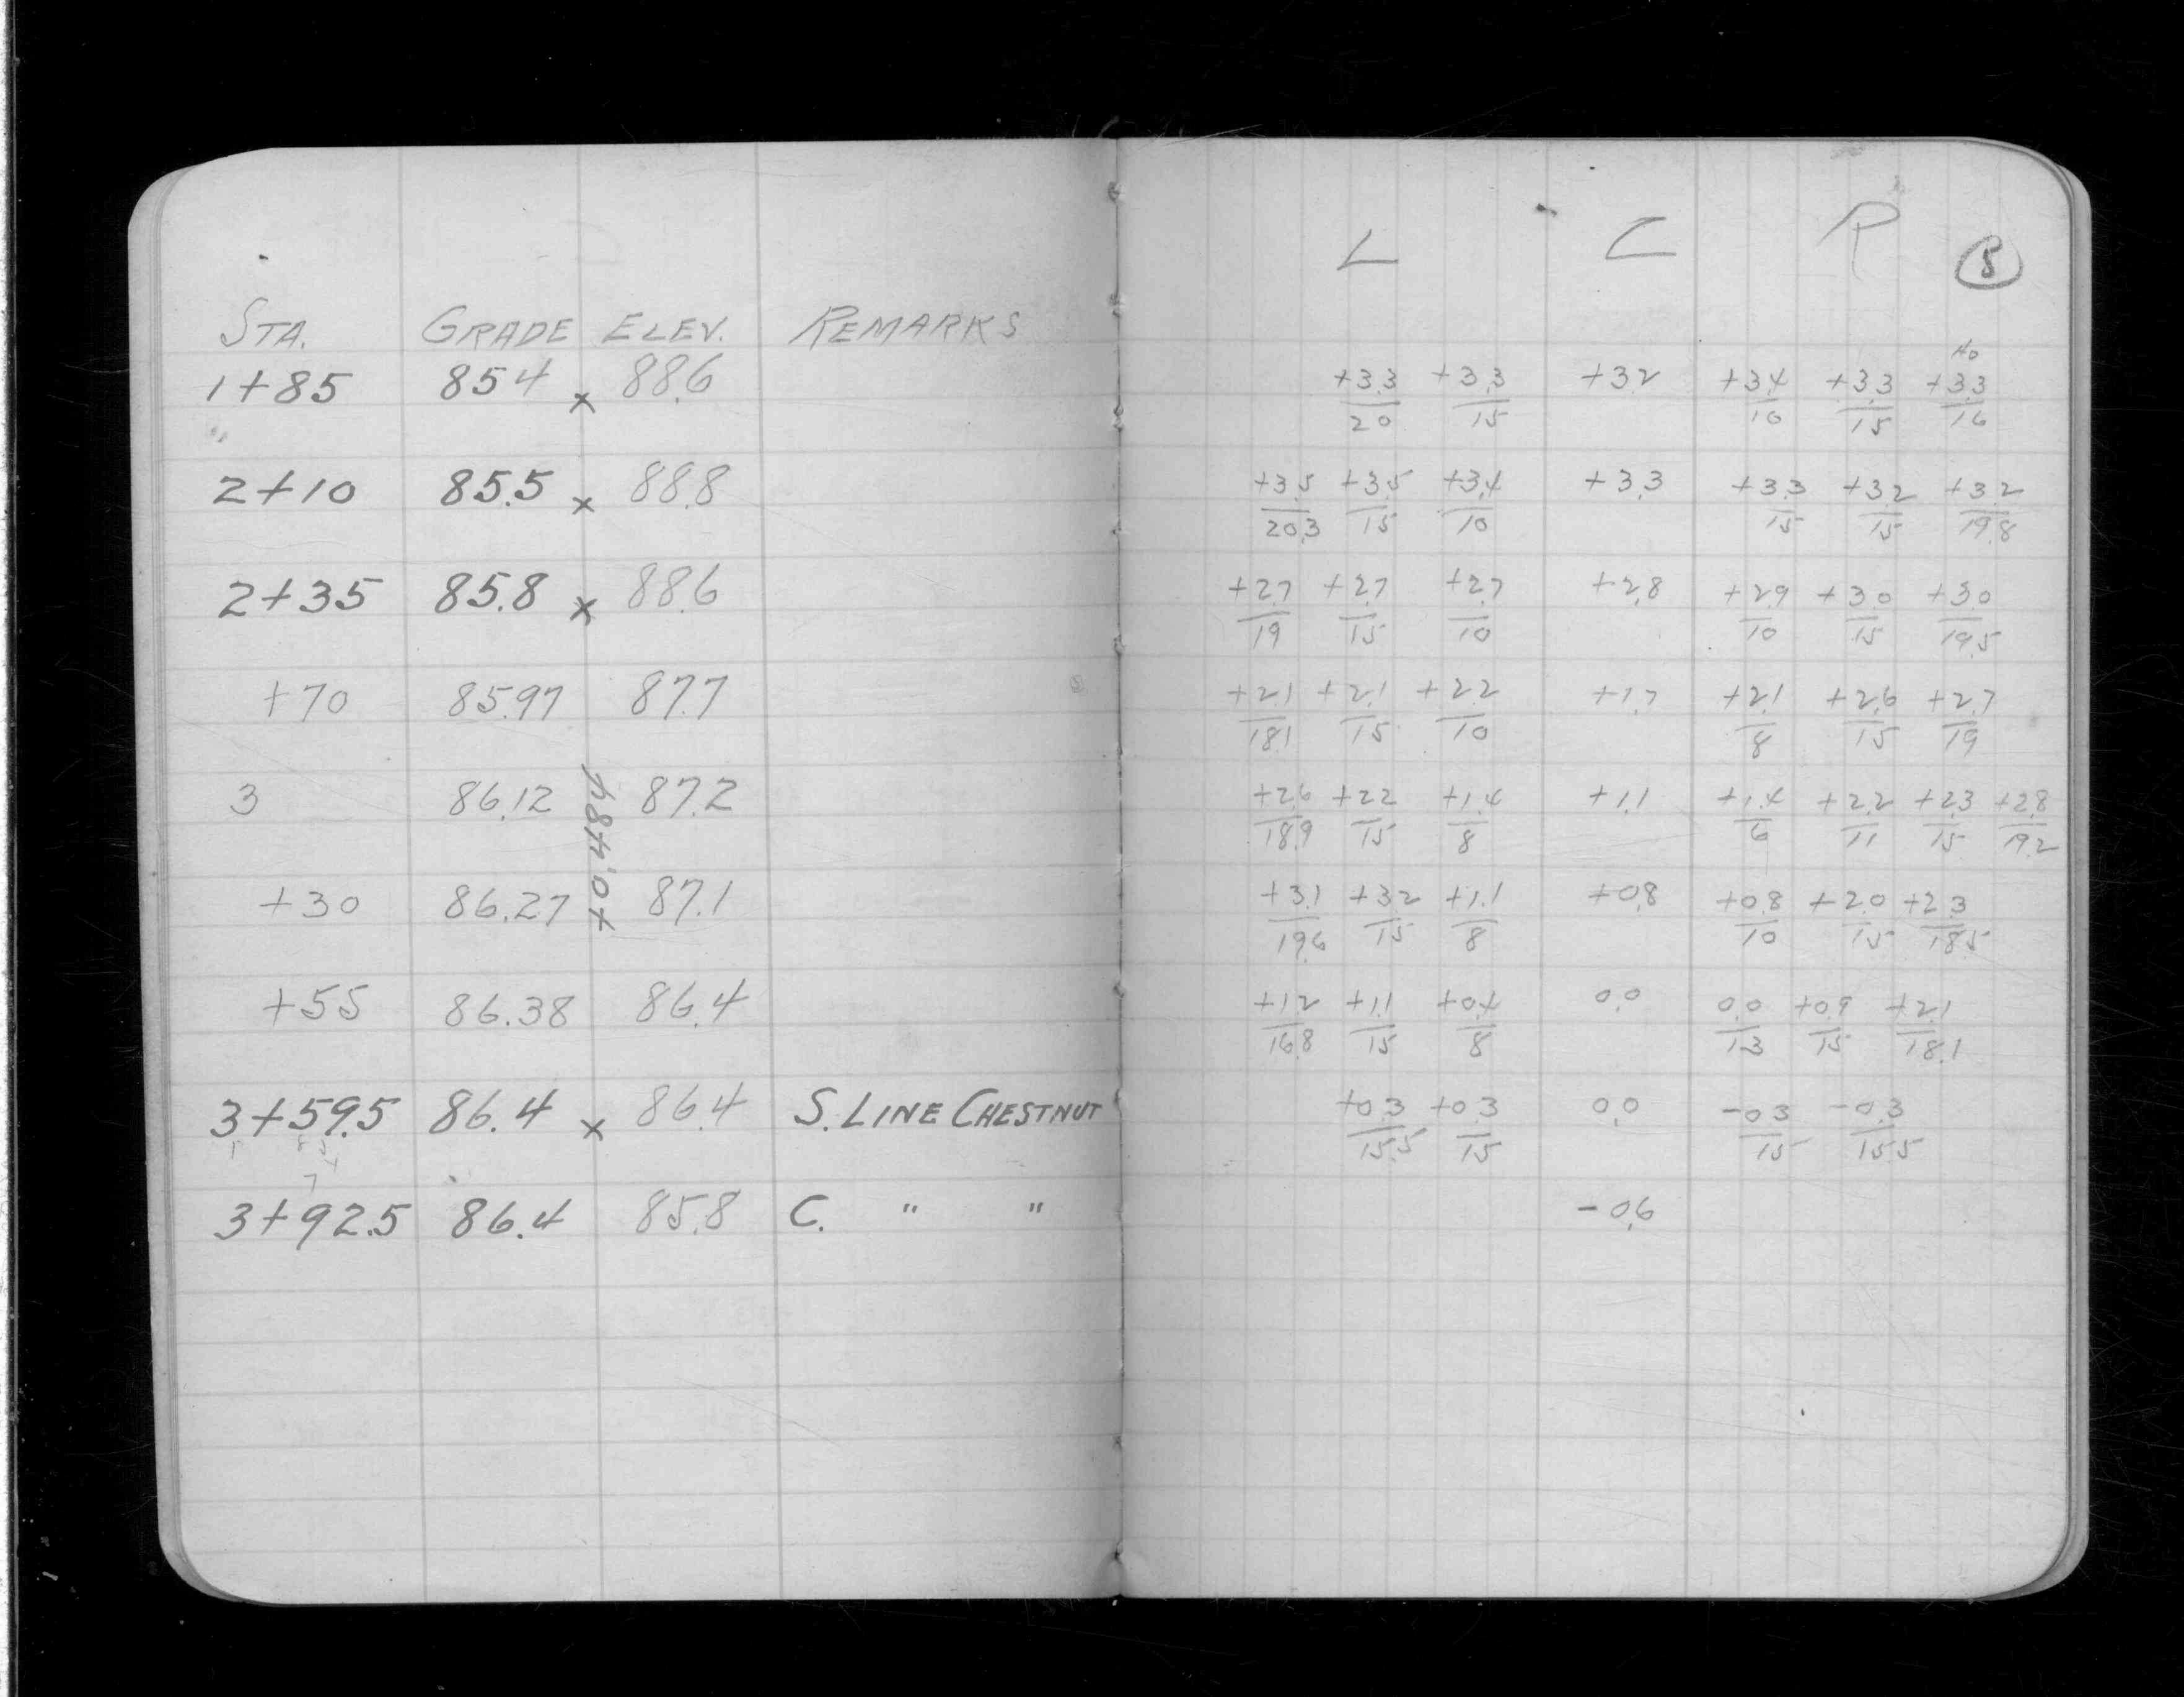 L C R 5
STA. GRADE ELEV. REMARKS
1+85 85.4 x 88.6 +3.3/20 +3.3/15 +3.2 +3.4/10 +3.3/15 +3.3/16
2+10 85.5 x 88.8 +3.5/20.3 +3.5/15 +3.4/10 +3.3 +3.3/15 +3.2/15 +3.2/19.8
2+35 85.8 x 88.6 +2.7/19 +2.7/15 +2.7/10 +2.8 +2.9/10 +3.0/15 +3.0/19.5
+70 85.97 87.7 +2.1/18.1 +2.1/15 +2.2/10 +1.7 +2.1/8 +2.6/15 +2.7/19
3 86.12 87.2 +2.6/18.9 +2.2/15 +1.4/8 +1.1 +1.4/6 +2.2/11 +2.3/15 +2.8/19.2
+0.48%
+30 86.27 87.1 +3.1/19.6 +3.2/15 +1.1/8 +0.8 +0.8/10 +2.0/15 +2.3/18.5
+55 86.38 86.4 +1.2/16.8 +1.1/15 +0.4/8 0.0 0.0/13 +0.9/15 +2.1/18.1
3+59.5 86.4 x 86.4 S. LINE CHESTNUT +0.3/15.5 +0.3/15 0.0 -0.3/15 -0.3/15.5
3+92.5 86.4 85.8 C. " " -0.6